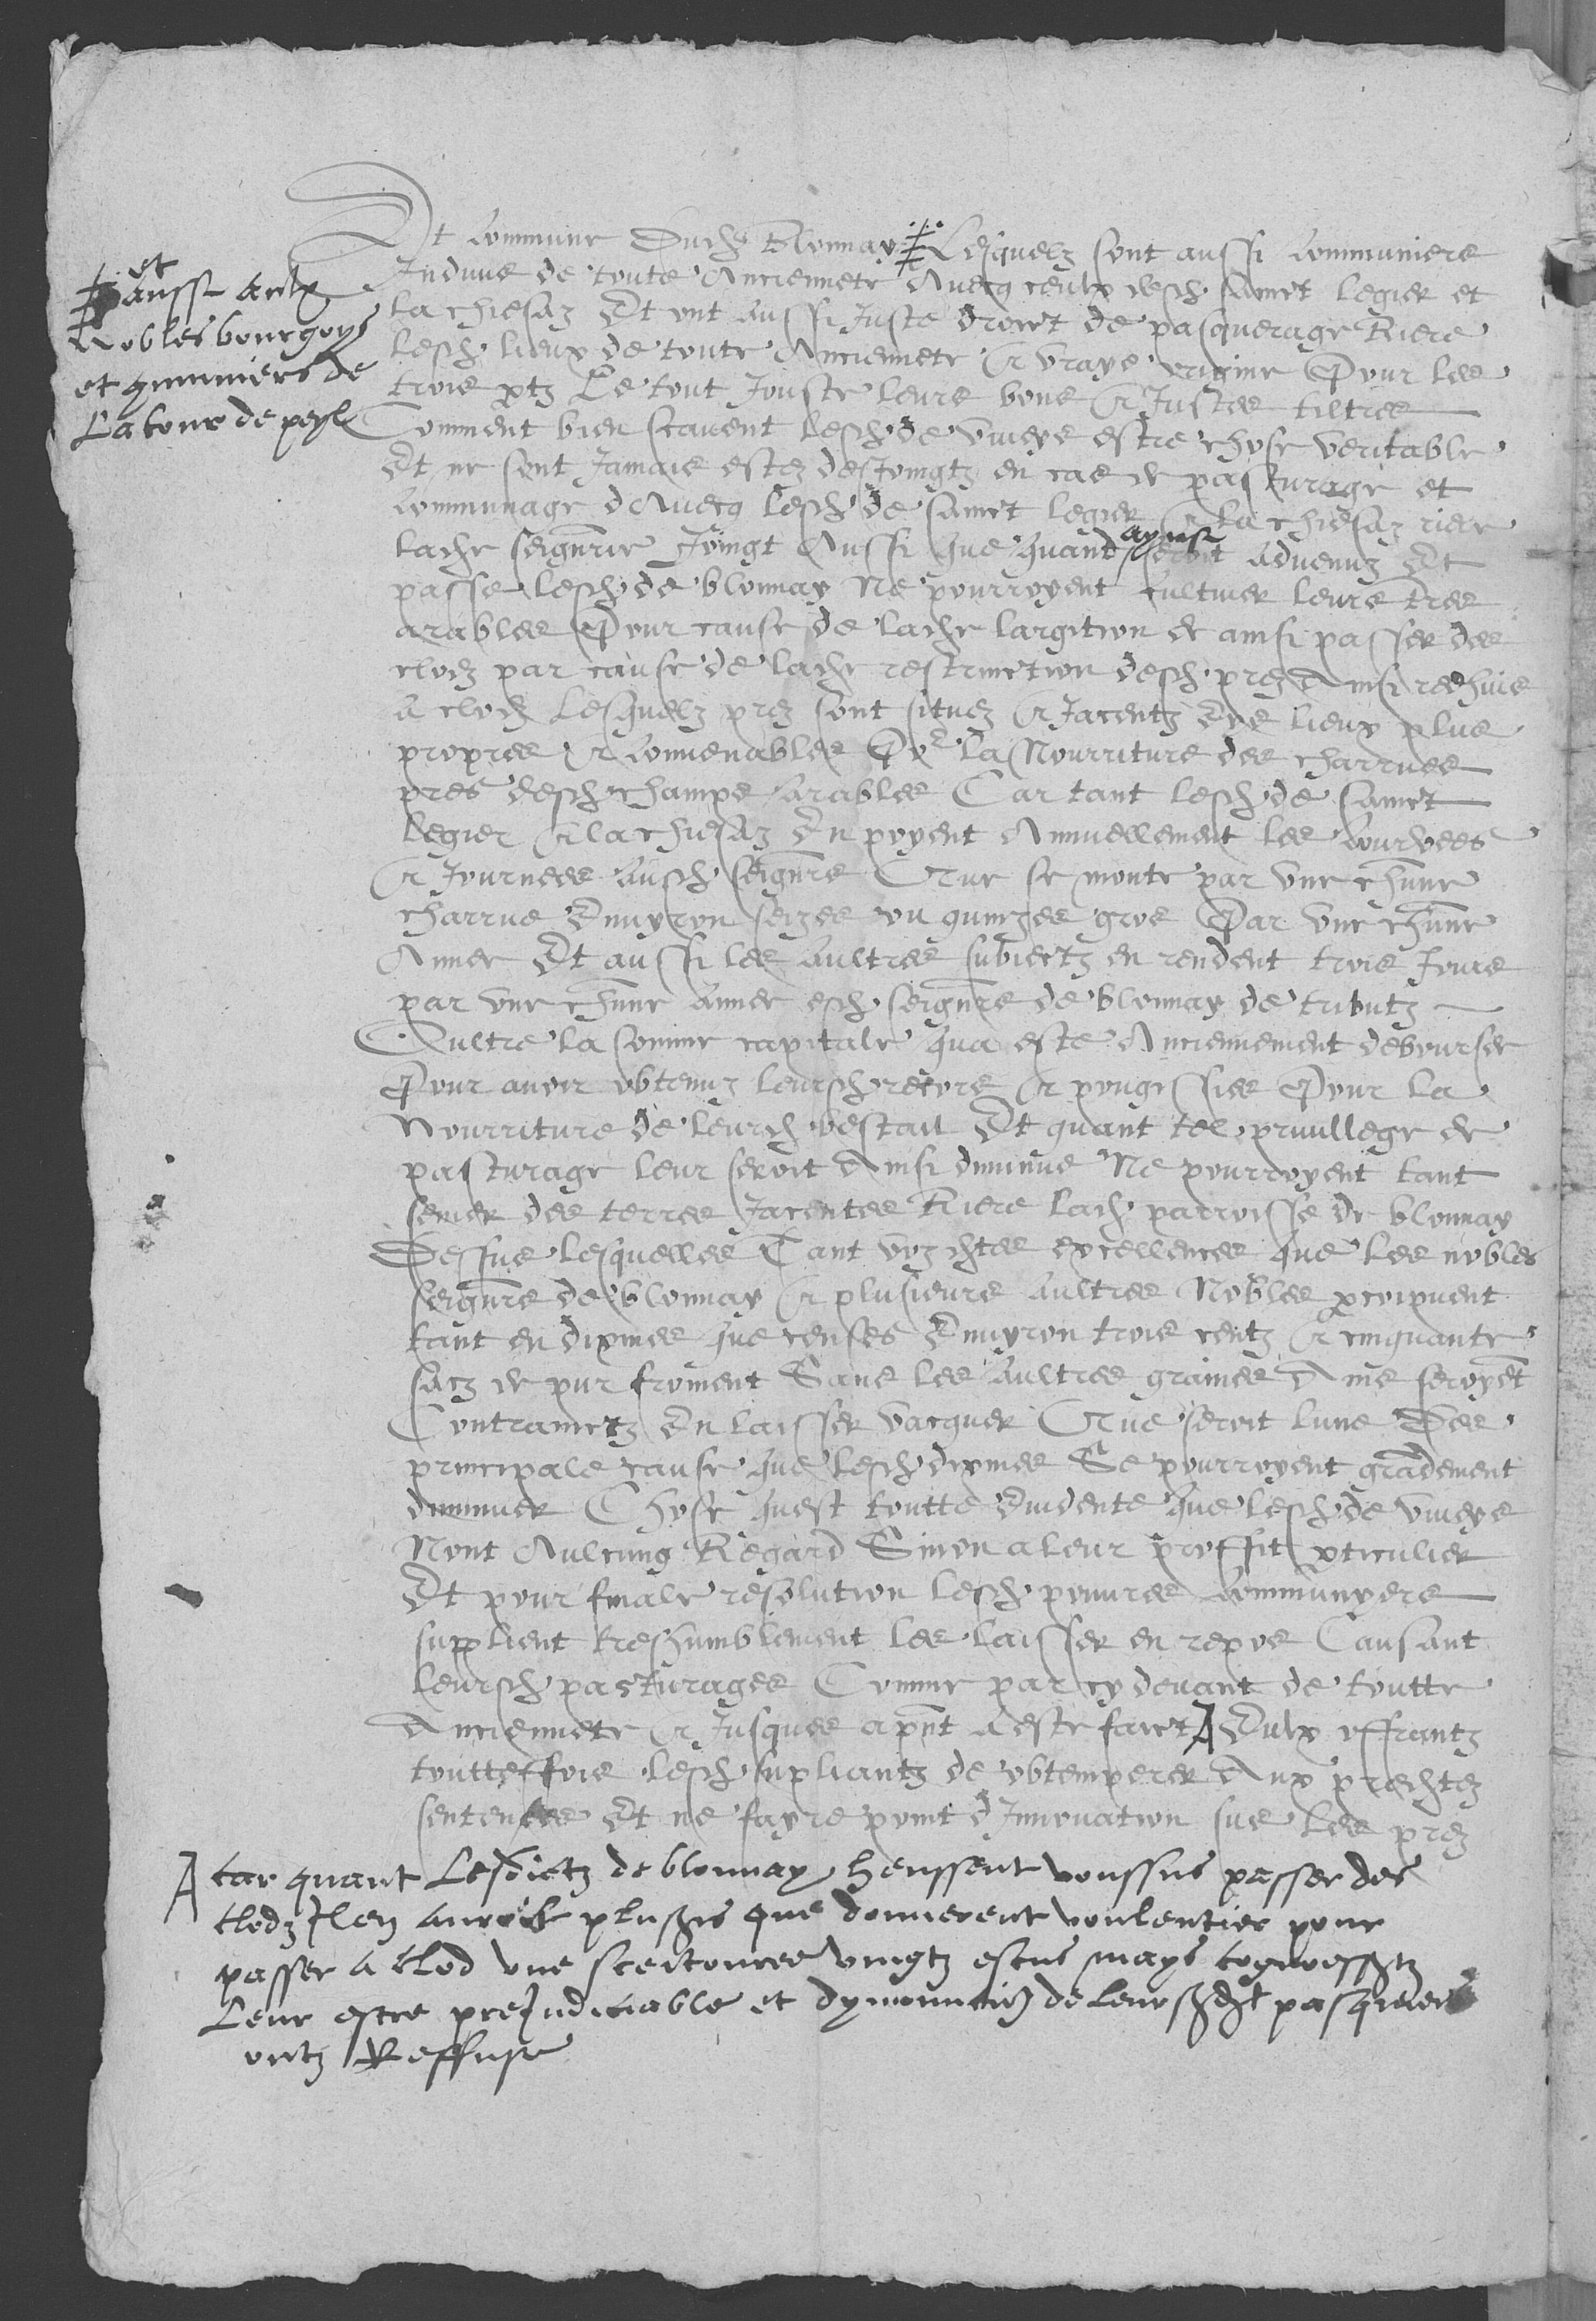 Et commune Dudz Blonnay ‡ Lesquelz sont aussi communiers
‡ et
aussi aulx
nobles bourgoys
et ɋmuniers de
La tour de peyl
Indiuis de toute Anciennete Auecq ceulx desdz sainct legier et
la chiesaz Et ont aussi Juste droict de pasquerage Riere
lesdz lieux de toute Anciennete et vraye origine Pour les
trois ptz Le tout Jouste leurs bons et Justes tiltres
Comment bien scauent lesdz de viueys estre chose veritable
Et ne sont Jamais estez desJoingtz en cas de pasturage et
communage dAuecq lesdz de sainct legier et la chiesaz riere
ladte seigneurie Joingt Aussi que quand aynsi seroit aduenuz Et
passe lesdz de blonnay Ne pourroyent cultiuer leurs tres
arables Pour cause de ladte largition et ainsi passer des
clodz par cause de ladte restrinction desdz prez Ainsi reduis
a clodz Lesquelz prez sont situez et Jacentz Des lieux plus
propres et conuenables Pour la Nourriture des charrues
pres desdz champs arables Car tant lesdz de sainct
legier et la chiesaz En poyent Annuellement les couruees
et Journees ausdz seigneurs Que se monte par vne chascune
charrue Enuyron seizes ou quinzes gros Par vne chascune
Annee Et aussi les aultres subiectz en rendent trois Jours
par vne chascune annee esdz seigneurs de blonnay de tributz
Oultre la somme capitale qua este Anciennement debourser
Pour auoir obtenuz leursdz recors et pougessies Pour la
Nourriture de leurdz bestail Et quant tel priuillege de
pasturage leur seroit Ainsi diminue Ne pourroyent tant
semer des terres Jacentes Riere ladz parroisse de blonnay
Dessus lesquelles Tant voz dictes excellences que les nobles
seigneurs de blonnay et plusieurs aultres Nobles pcoipuent
tant en dixmes que censes Enuyron trois centz et cinquante
sacz de pur froment Sans les aultres graines Ains seroyent
Contrainctz En laisser vacquer Que seroit lune Des
principale cause que lesdz dixmes Se pourroyent grandement
diminuer Chose quest toutte Euidente que lesdz de viueys
Nont Aulcung Regard Sinon a leur proffit pticulier
Et pour finale resolution lesdz poures communyers
supplient treshumblement les laisser en repos Causant
leursdz pasturages Comme par cy deuant de toutte
Anciennete et Jusques apnt a este faict A Eulx offrantz
touttesfois lesdz supliantz de obtemperer Aux predictez
sentences Et ne fayre point dInnouation sus les prez
A car quant Lesdictz de blonnay heussent voussus passer des
clodz Ilen auroit plusrs que donnerent voulentier pour
passer a clod une sceitouree vingtz escus mays cognoessantz
Leur estre preJudiciable et dyminution de leursdt pasquiers
ontz Reffuse